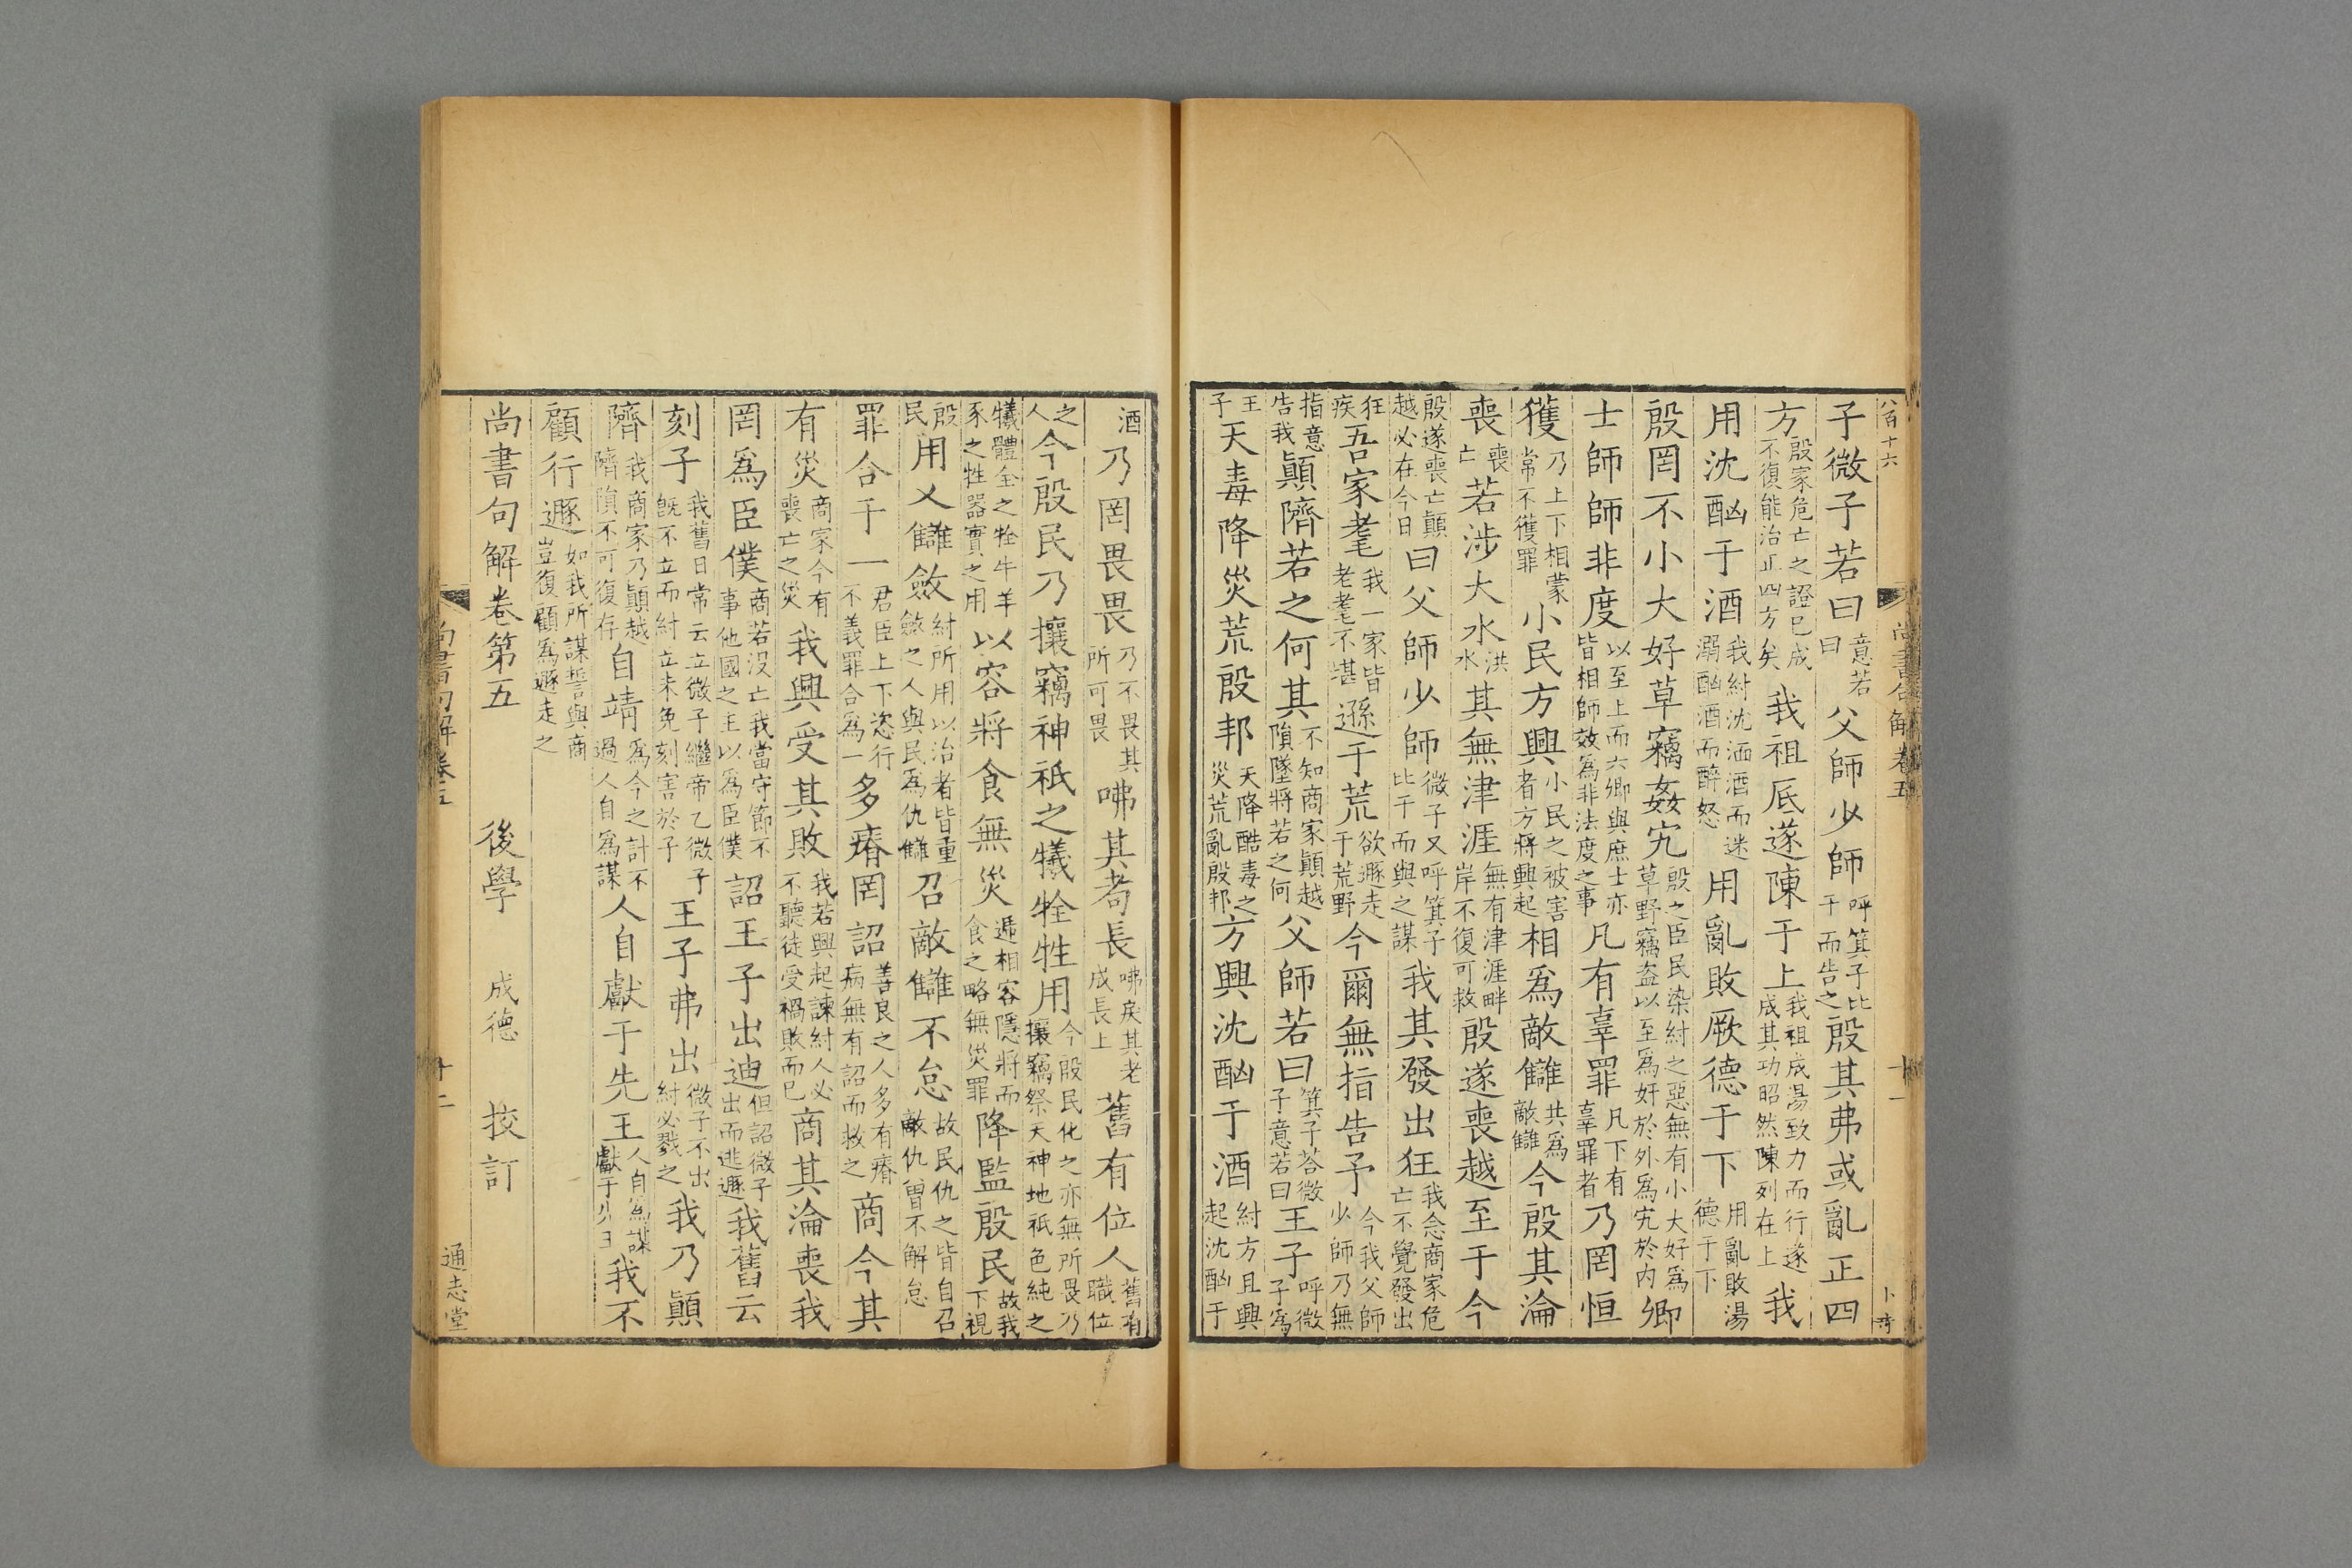 八百十六
尚書句解卷五
十一
子微子若曰意若曰父師少師呼箕子比干而告之殷其弗或亂正四
方殷家危亡之證已成不復能治正四方矣我祖厎遂陳于上我祖成湯致力而行遂成其功昭然陳列在上我
用沈酗于酒我紂沈湎酒而迷溺酗酒而醉怒用亂敗厥德于下用亂敗湯德于下
殷罔不小大好草竊姦宄殷之臣民染紂之惡無有小大好為草野竊盗以至為奸於外為宄於內卿
士師師非度以至上而六卿與庶士亦皆相師效為非法度之事凡有辜罪凡下有辜罪者乃罔恒
獲乃上下相蒙常不獲罪小民方興小民之被害者方將興起相爲敵讎共爲敵讎今殷其淪
喪喪亡若涉大水洪水其無津涯無有津涯畔岸不復可救殷遂喪越至于今
殷遂喪亡顛越必在今日曰父師少師微子又呼箕子比干而與之謀我其發出狂我念商家危亡不覺發出
狂疾吾家耄我一家皆老耄不堪遜于荒欲遯走于荒野今爾無指告予今我父師少師乃無
指意告我顚隮若之何其不知商家顛越隕墜將若之何父師若曰箕子荅微子意若曰王子呼微子為
王子天毒降災荒殷邦天降酷毒之災荒亂殷邦方興沈酗于酒紂方且興起沈酗于
酒乃罔畏畏乃不畏其所可畏咈其耇長咈戾其老成長上舊有位人舊有職位
之人今殷民乃攘竊神祇之犧牷牲用今殷民化之亦無所畏乃攘竊祭天神地祇色純之
犧體全之牷牛羊豕之牲器實之用以容將食無災遞相容隱將而食之略無災罪降監殷民故我下視
殷民用乂讎斂紂所用以治者皆重斂之人與民爲仇讎召敵讎不怠故民仇之皆自召敵仇曾不解怠
罪合于一君臣上下恣行不義罪合爲一多瘠罔詔善良之人多有瘠病無有詔而救之商今其
有災商家今有喪亡之災我興受其敗我若興起諫紂人必不聽徒受禍敗而已商其淪喪我
罔爲臣僕商若没亡我當守節不事他國之主以爲臣僕詔王子出迪但詔微子出而逃遯我舊云
刻子我舊日常云立微子繼帝乙微子旣不立而紂立未免刻害於子王子弗出微子不出紂必戮之我乃顚
隮我商家乃顛越隮隕不可復存自靖爲今之計不過人自爲謀人自獻于先王人自爲謀獻于先王我不
顧行遯如我所謀誓與商豈復顧爲遯走之
尚書句解卷第五　後學　成德　挍訂
尚書句解卷五
十二
通志堂